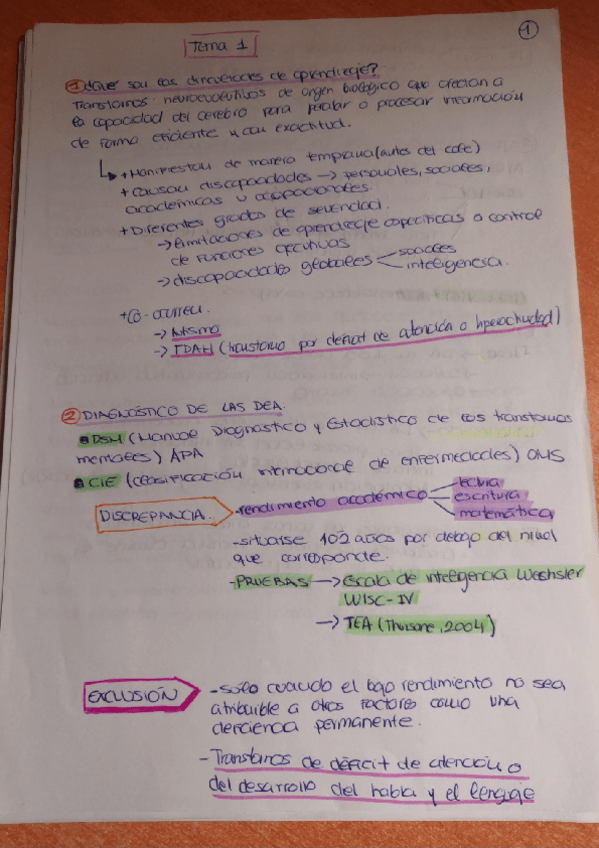 1
Tema 1
① ¿Qué son las dificultades de aprendizaje?
Transtornos neuroevolutivos de origen biológico que afectan a
la capacidad del cerebro para percibir o procesar información
de forma eficiente y con exactitud.
↳ + Manifiestan de manera temprana (antes del cole)
+ Causan discapacidades → personales, sociales,
académicas u ocupacionales.
+ Diferentes grados de severidad.
→ Limitaciones de aprendizaje específicas o control
de funciones ejecutivas
→ discapacidades globales < sociales
inteligencia.
+ Co-ocurren
→ Autismo
→ TDAH (transtorno por déficit de atención o hiperactividad)
② DIAGNÓSTICO DE LAS DEA.
DSM (Manual Diagnostico y Estadístico de los transtornos
mentales) APA
CIE (clasificación internacional de enfermedades) OMS
DISCREPANCIA... -rendimiento académico < lectura
escritura
matemática
-situarse 1 o 2 años por debajo del nivel
que corresponde.
-PRUEBAS → Escala de inteligencia Wechsler
WISC-IV
→ TEA (Thurstone, 2004)
EXCLUSIÓN -sólo cuando el bajo rendimiento no sea
atribuible a otros factores como una
deficiencia permanente.
-Transtornos de déficit de atención o
del desarrollo del habla y el lenguaje